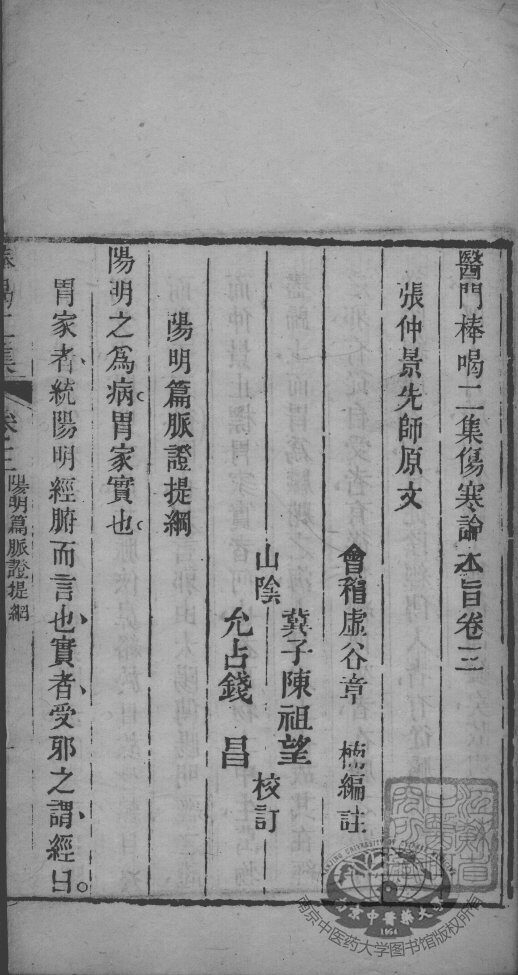 醫門棒喝二集傷寒論本旨卷三
張仲景先師原文
會稽虛谷章楠編註
山陰
蓂子陳祖望
允占錢昌
校訂
陽明篇脈證提綱
陽明之爲病胃家實也
胃家者統陽明經腑而言也實者受邪之謂經曰
棒喝二集
卷三
陽明篇脈證提綱
南京中医药大学图书馆版权所有
南京中醫藥大學
1954